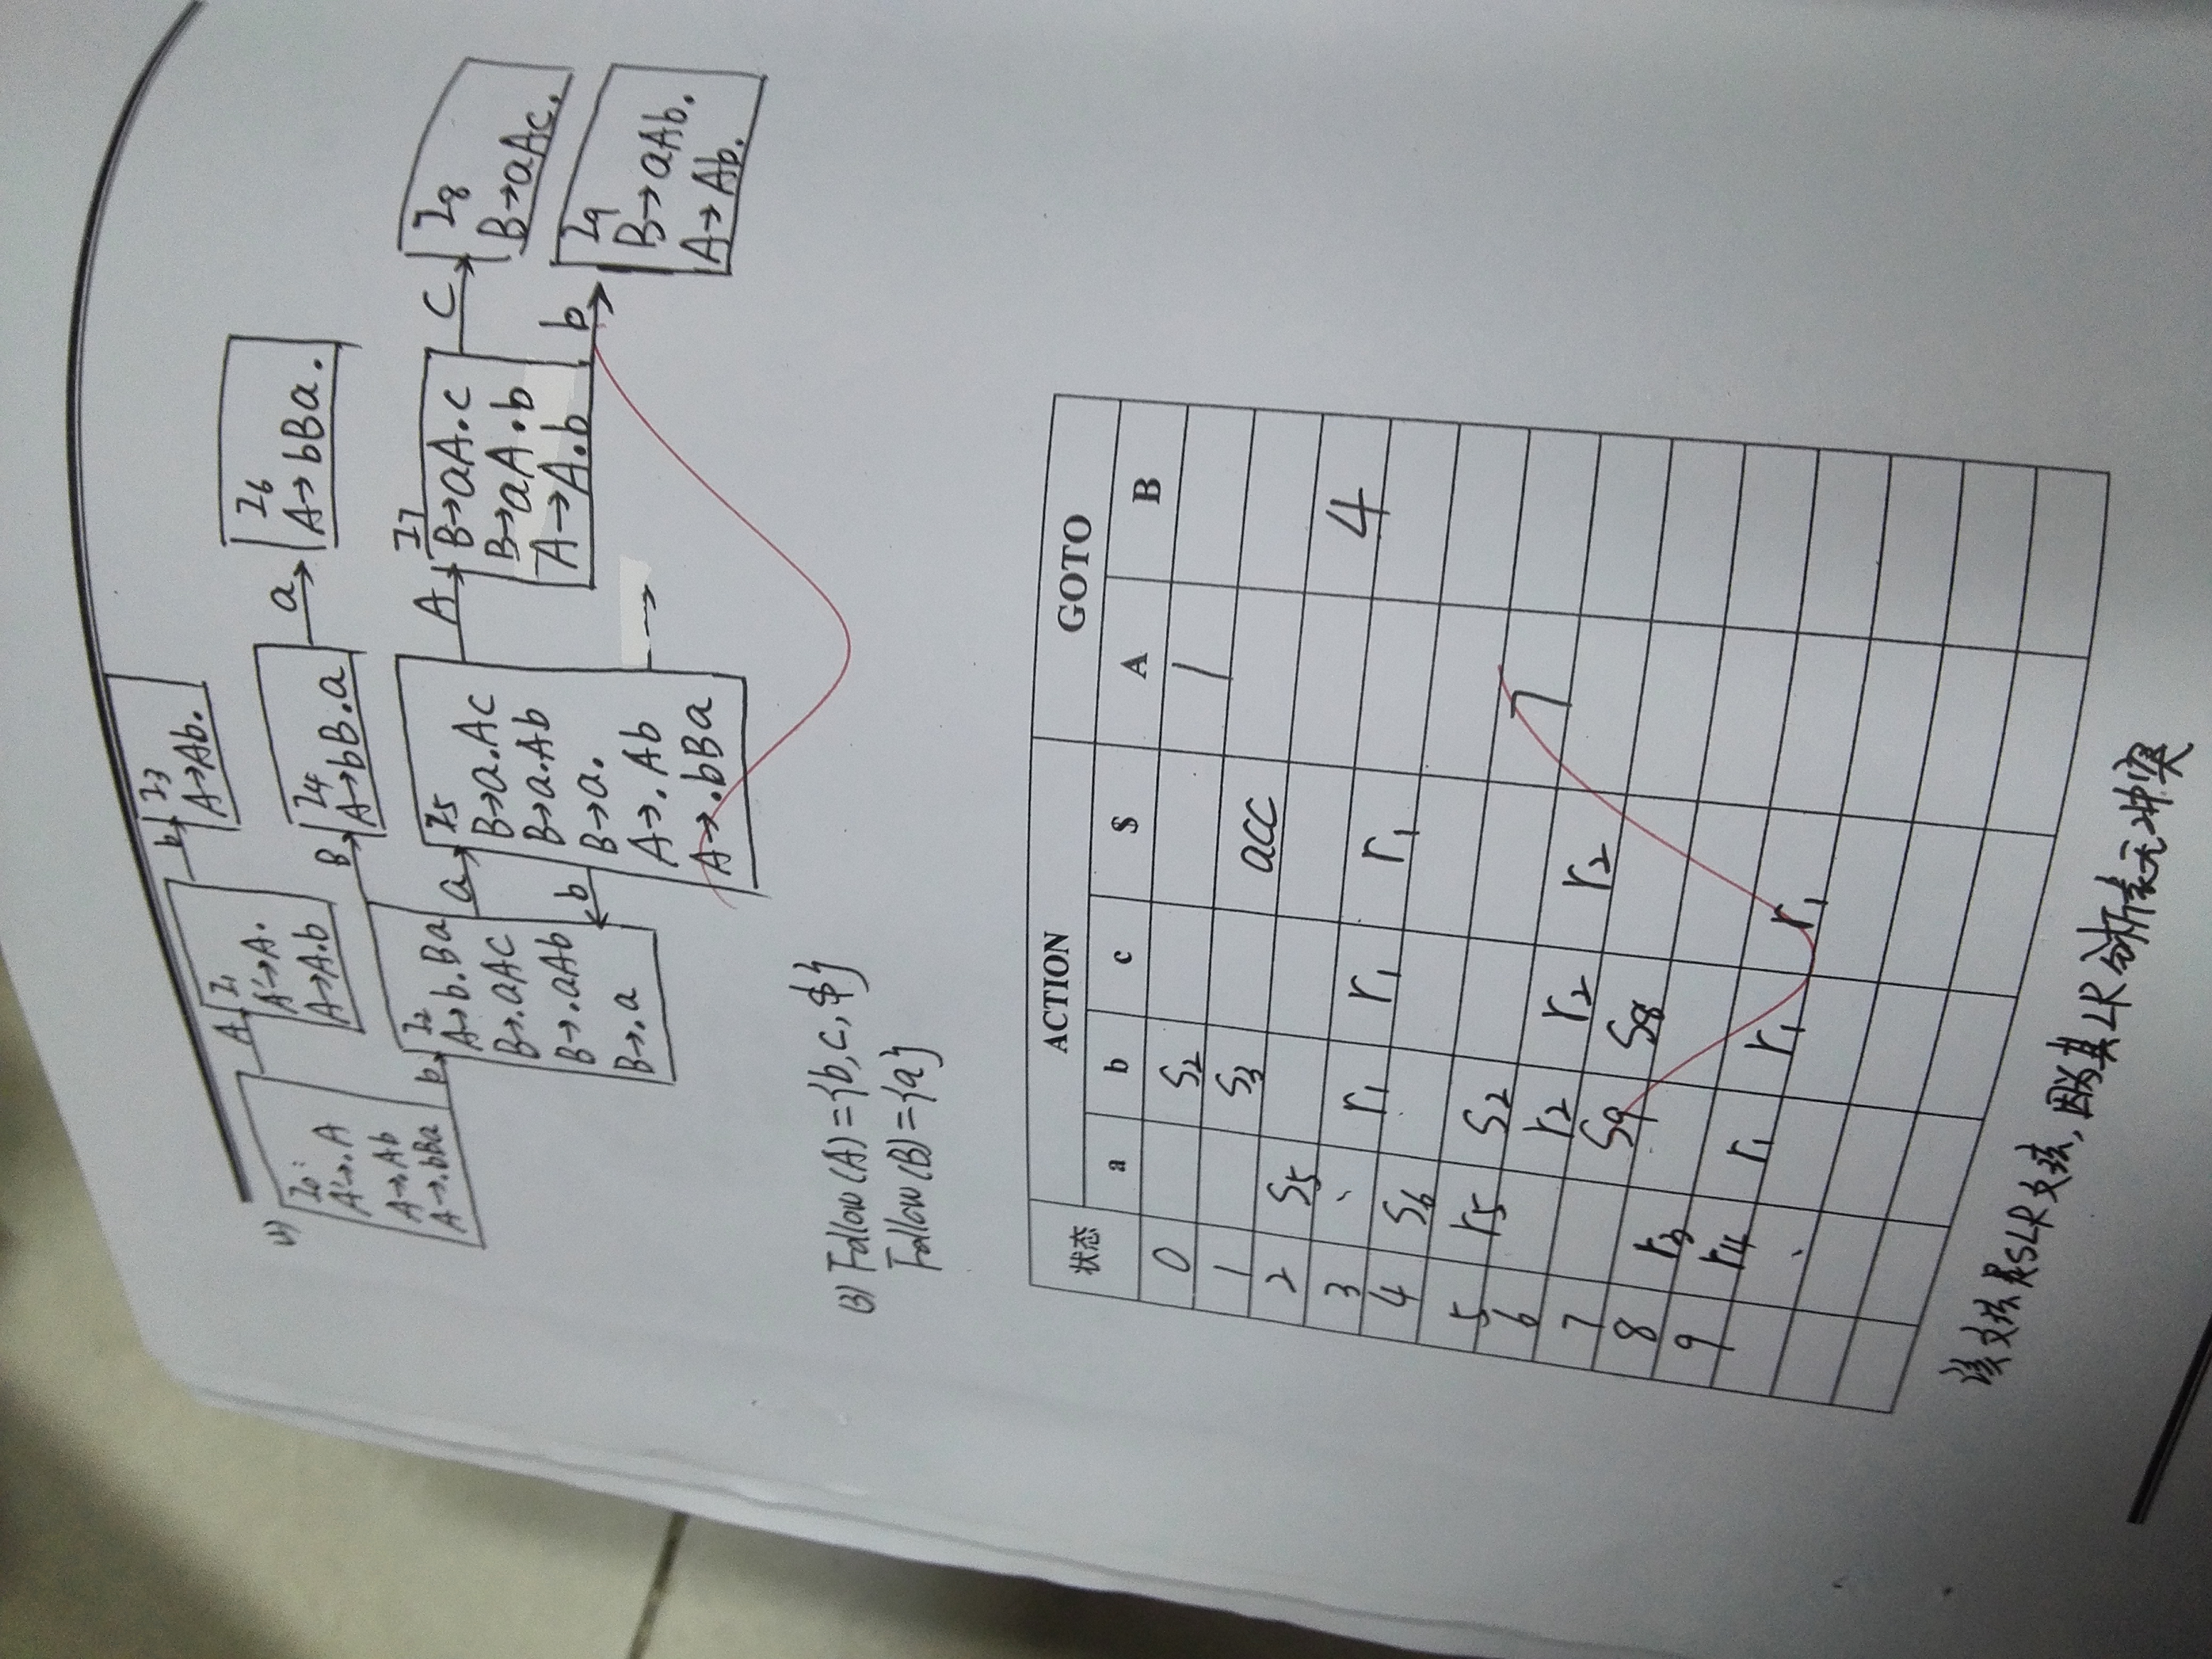 (1)
I0:
A'→.A
A→.Ab
A→.bBa
A
I1
A'→A.
A→A.b
b
I3
A→Ab.
b
I2
A→b.Ba
B→.aAc
B→.aAb
B→.a
B
I4
A→bB.a
a
I6
A→bBa.
a
b
I5
B→a.Ac
B→a.Ab
B→a.
A→.Ab
A→.bBa
A
I7
B→aA.c
B→aA.b
A→A.b
c
I8
B→aAc.
b
I9
B→aAb.
A→Ab.
(3) Follow(A)={b,c,$}
Follow(B)={a}
状态 ACTION GOTO
a b c $ A B
0 S2 1
1 S3 acc
2 S5 4
3 r1 r1 r1
4 S6
5 r5 S2 7
6 r2 r2 r2
7 S9 S8
8 r3
9 r4 r1 r1 r1
该文法是SLR文法,因为其LR分析表无冲突